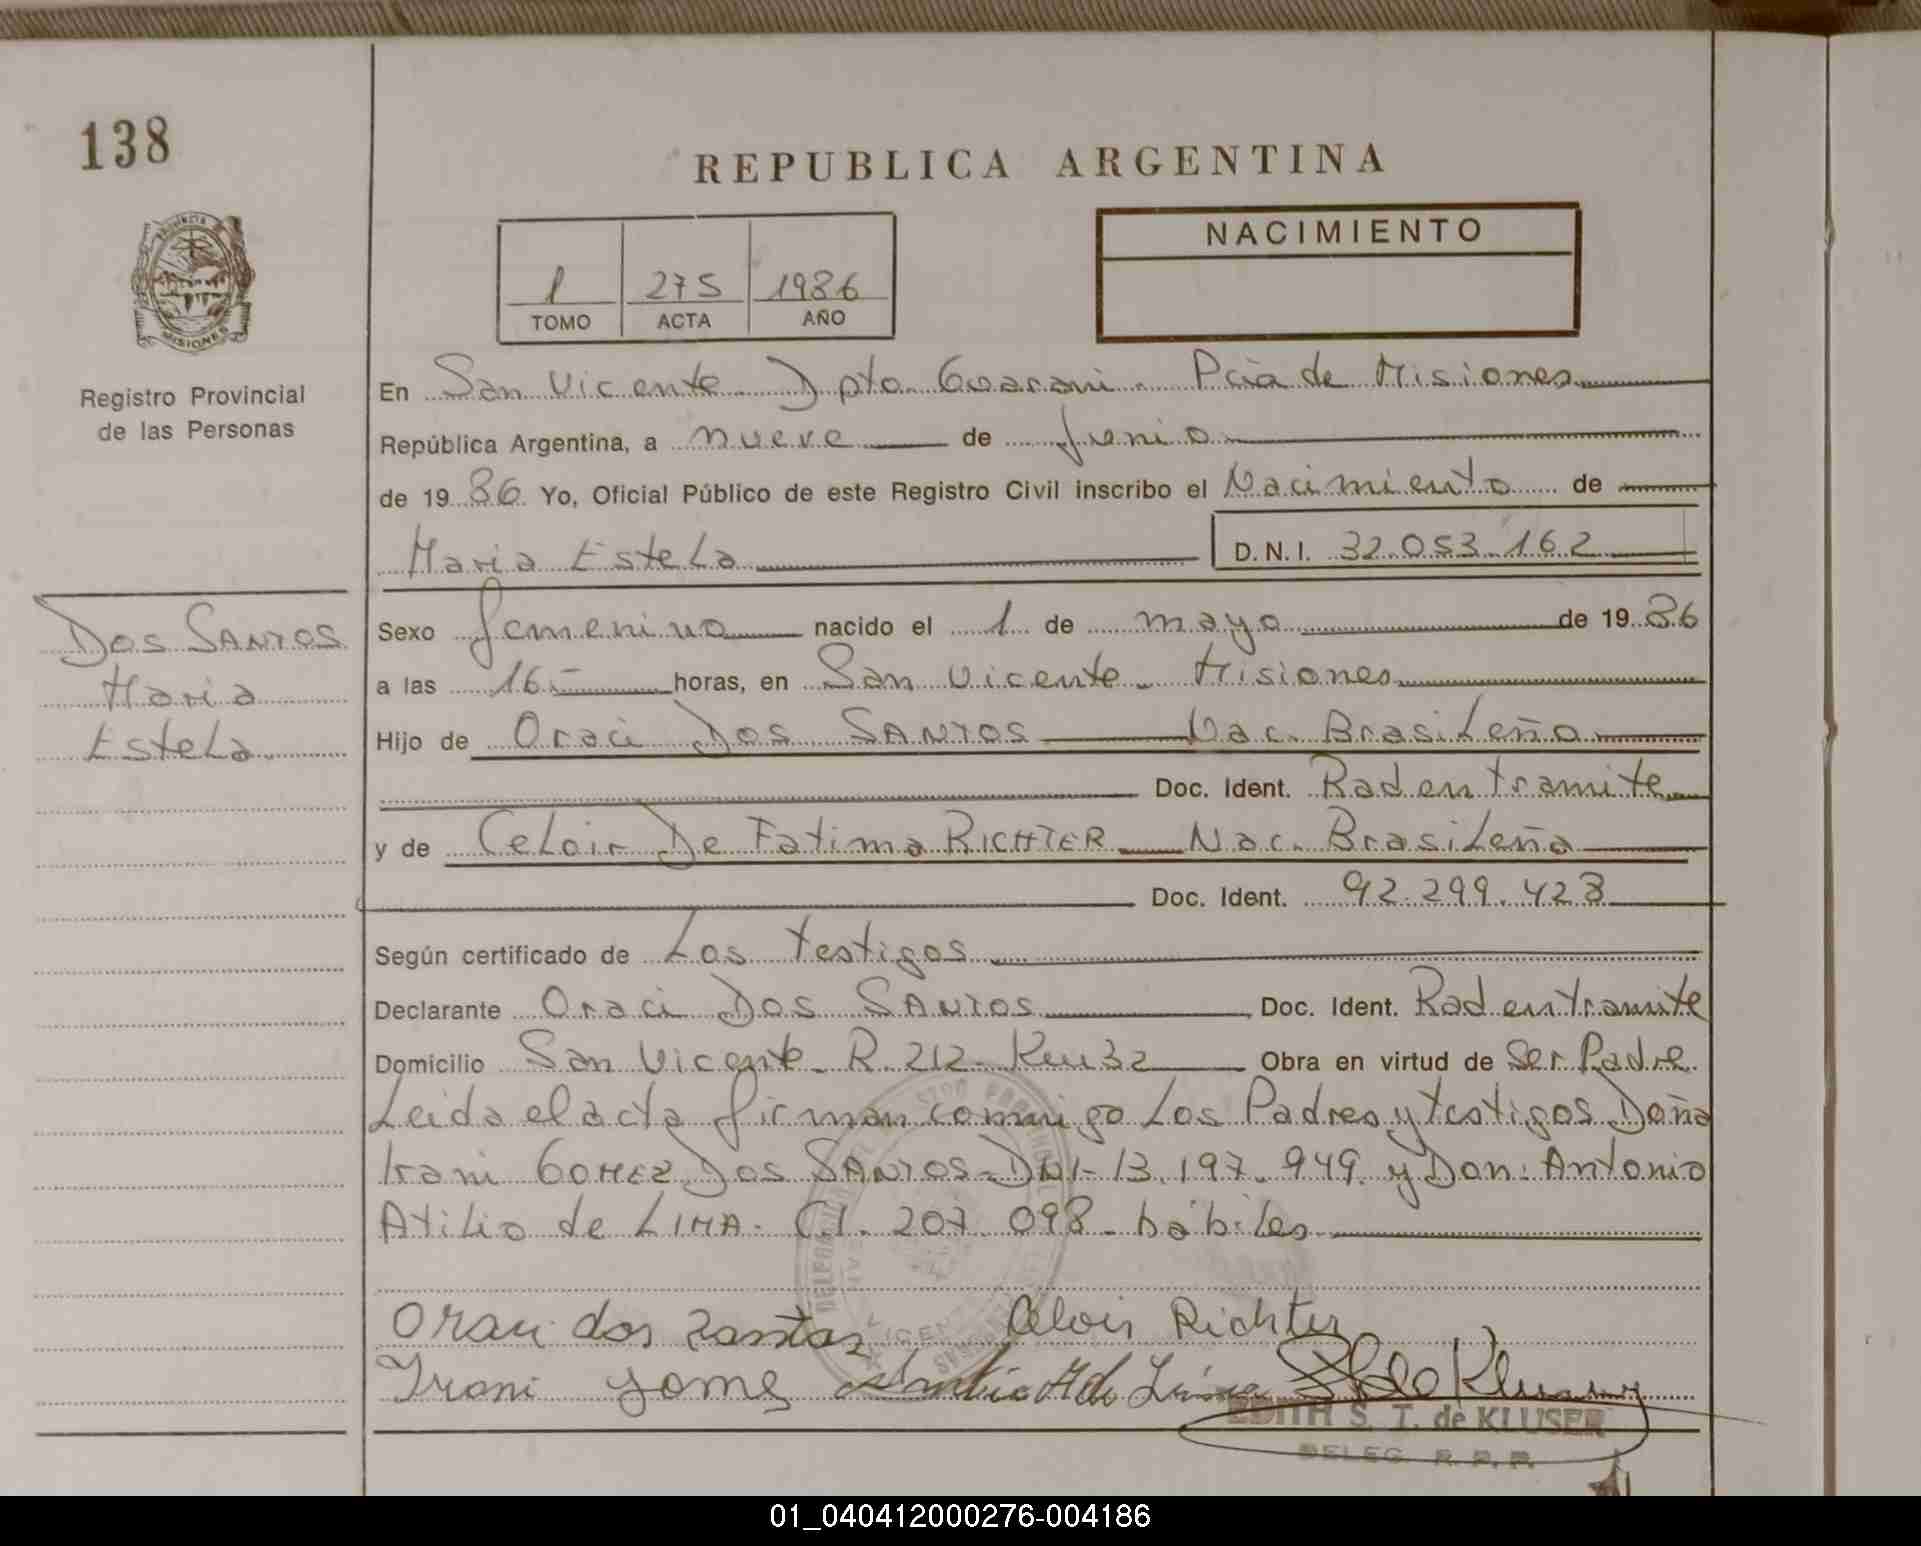 138
REPUBLICA ARGENTINA
PROVINCIA
MISIONES
1 275 1986
TOMO ACTA AÑO
NACIMIENTO
Registro Provincial
de las Personas
En San Vicente Dpto Guarani Pcia de Misiones
República Argentina, a nueve de Junio
de 1986 Yo, Oficial Público de este Registro Civil inscribo el Nacimiento de
Maria Estela D.N.I. 32.053.162
Dos SANTOS
Maria
Estela
Sexo femenino nacido el 1 de mayo de 1986
a las 16 horas, en San Vicente - Misiones
Hijo de Oraci Dos SANTOS Nac. Brasileño
Doc. Ident. Rad en tramite
y de Celoir De Fatima RICHTER Nac. Brasileña
Doc. Ident. 92.299.428
Según certificado de Los testigos
Declarante Oraci Dos SANTOS Doc. Ident. Rad en tramite
Domicilio San Vicente - R. 212 - Km 32 Obra en virtud de Ser Padre
Leida el acta firman conmigo Los Padres y testigos Doña
Irani GOMEZ Dos SANTOS - DNI - 13.197.949. y Don: Antonio
Atilio de LIMA - CI. 207.098 - habiles
Oraci dos santos Celoir Richter
Irani gomes
EDITH S. T. de KLUSER
DELEG. R. P. P.
01_040412000276-004186